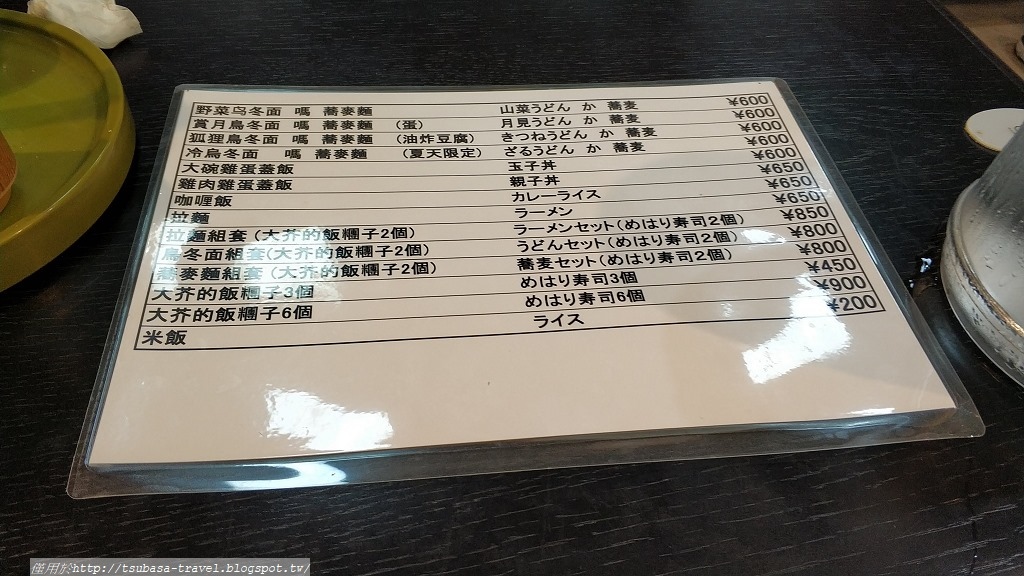 野菜鸟冬面 嗎 蕎麥麵 山菜うどん か 蕎麦 ¥600
賞月鳥冬面 嗎 蕎麥麵 (蛋) 月見うどん か 蕎麦 ¥600
狐狸鳥冬面 嗎 蕎麥麵 (油炸豆腐) きつねうどん か 蕎麦 ¥600
冷烏冬面 嗎 蕎麥麵 (夏天限定) ざるうどん か 蕎麦 ¥600
大碗雞蛋蓋飯 玉子丼 ¥600
雞肉雞蛋蓋飯 親子丼 ¥650
咖喱飯 カレーライス ¥650
拉麵 ラーメン ¥650
拉麵組套(大芥的飯糰子2個) ラーメンセット(めはり寿司2個) ¥850
鳥冬面組套(大芥的飯糰子2個) うどんセット(めはり寿司2個) ¥800
蕎麥麵組套(大芥的飯糰子2個) 蕎麦セット(めはり寿司2個) ¥800
大芥的飯糰子3個 めはり寿司3個 ¥450
大芥的飯糰子6個 めはり寿司6個 ¥900
米飯 ライス ¥200
僅用於http://tsubasa-travel.blogspot.tw/